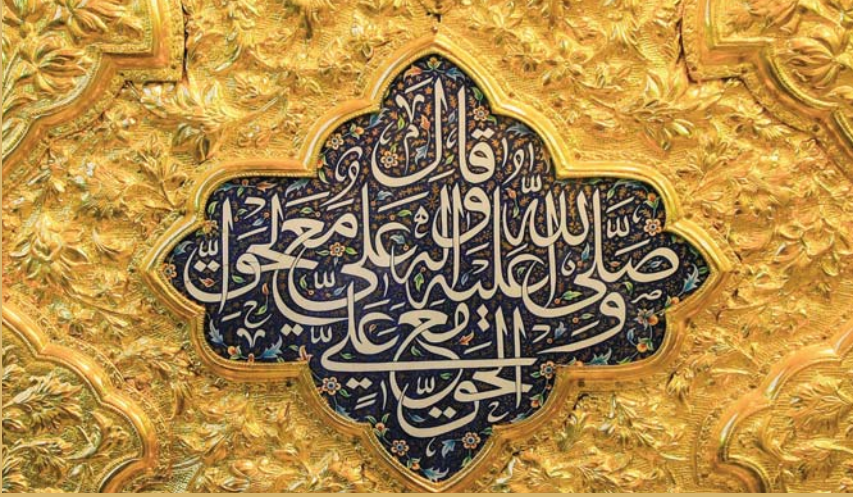 قال
صلى الله عليه وآله علي مع الحق
والحق مع علي